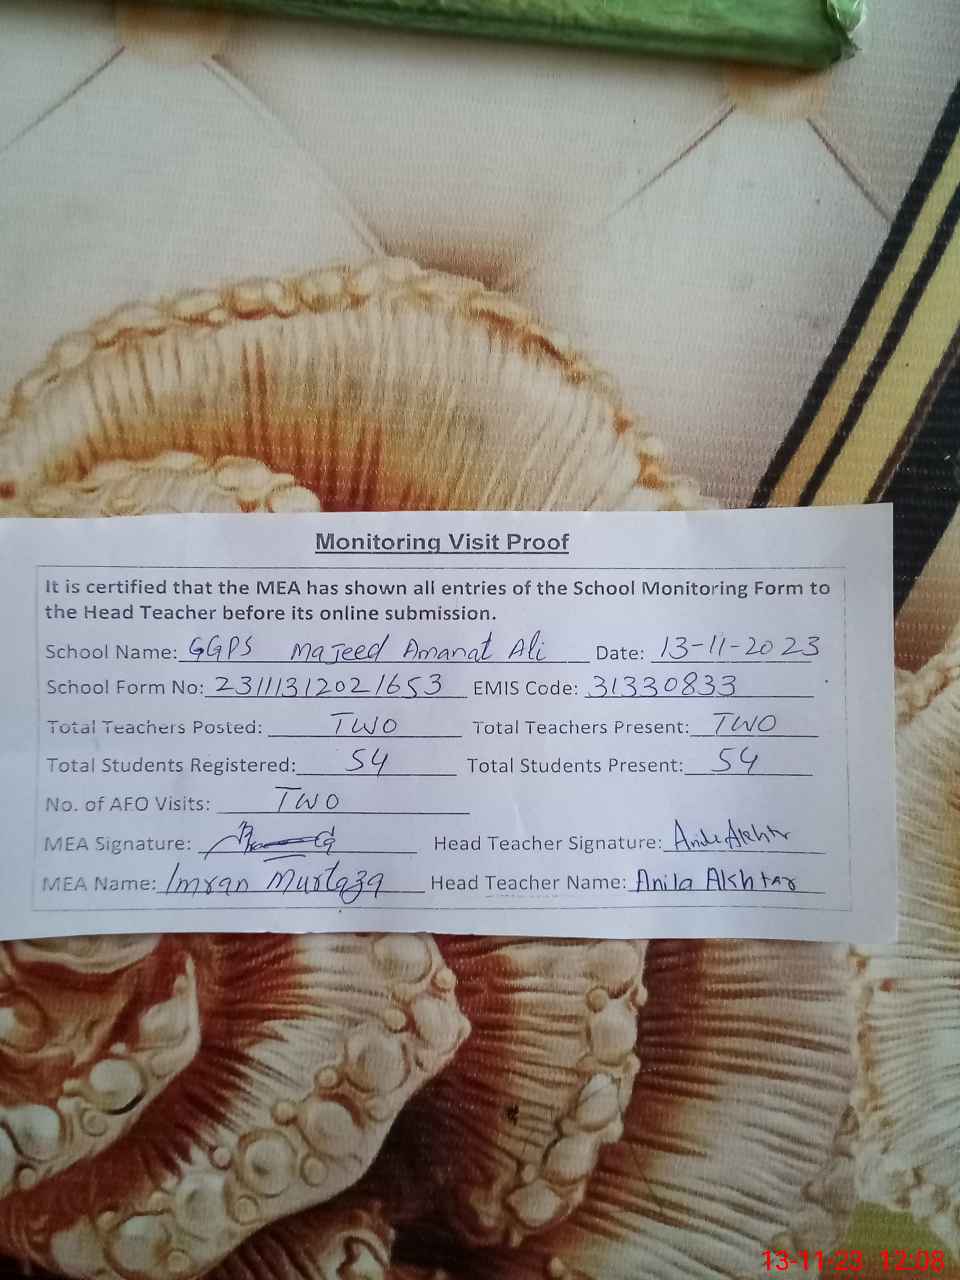 Monitoring Visit Proof
It is certified that the MEA has shown all entries of the School Monitoring Form to
the Head Teacher before its online submission.
School Name: GGPS Majeed Amanat Ali Date: 13-11-2023
School Form No: 23111312021653 EMIS Code: 31330833
Total Teachers Posted: TWO Total Teachers Present: TWO
Total Students Registered: 54 Total Students Present: 54
No. of AFO Visits: TWO
MEA Signature: Head Teacher Signature: Anila Akhtar
MEA Name: Imran Murtaza Head Teacher Name: Anila Akhtar
13-11-23 12:08